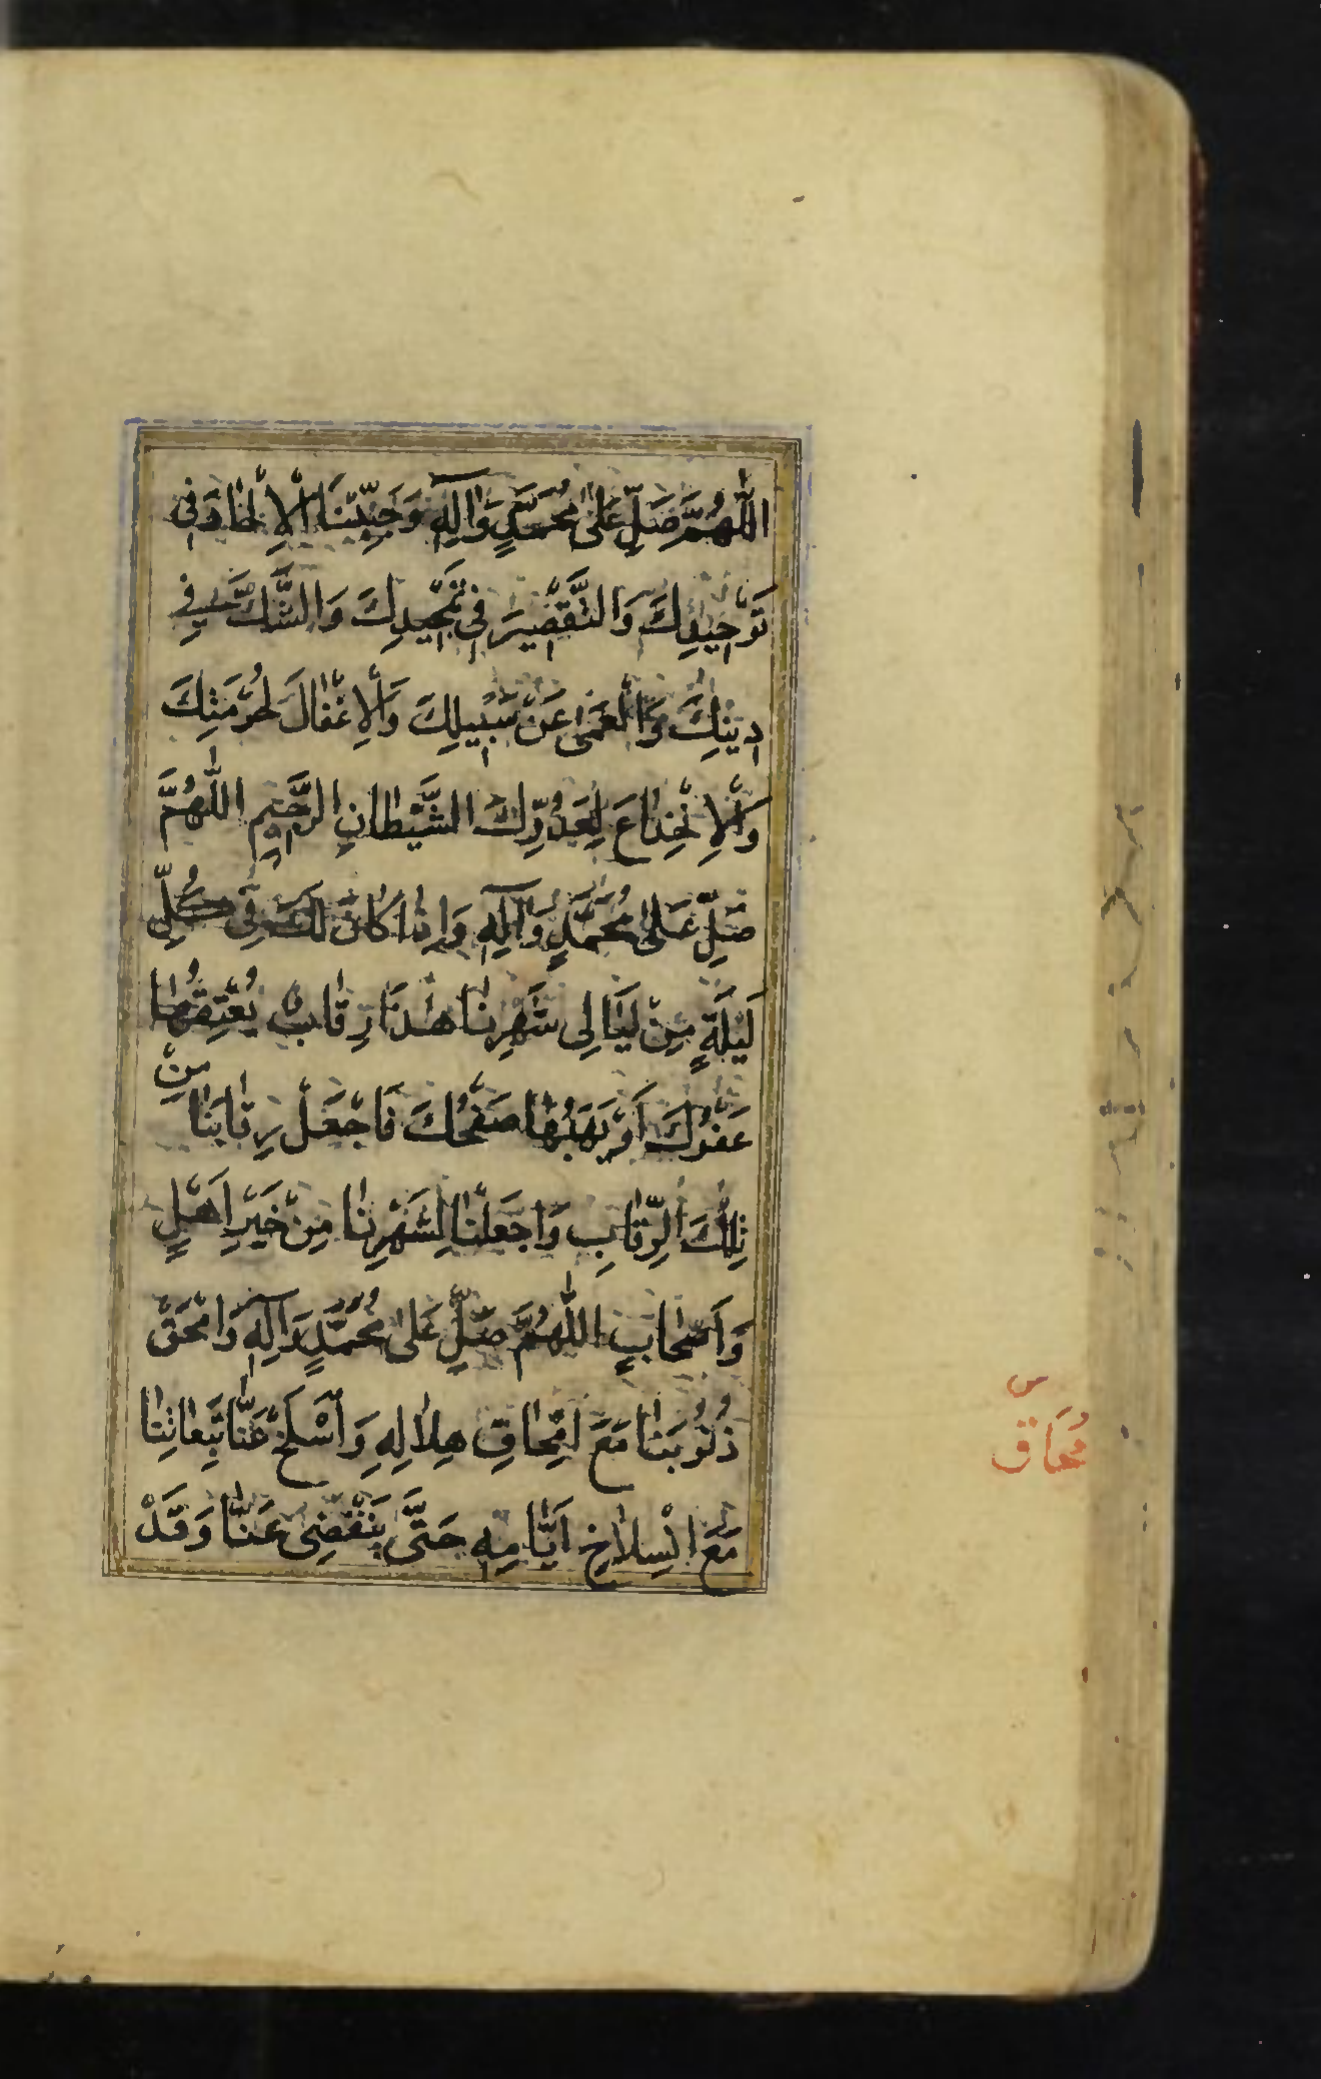 اللّٰهُمَّ صَلِّ عَلىٰ مُحَمَّدٍ وَاٰلِهٖ وَجَنِّبْنَا الْاِلْحٰادَ فى
تَوْحيٖدِكَ وَالتَّقْصٖيرَ فى تَمْجٖيدِكَ وَالشَّكَّ فى
دٖينِكَ وَالْعَمىٰ عَنْ سَبٖيلِكَ وَالْاِغْفٰالَ لِحُرْمَتِكَ
وَالْاِنْخِدٰاعَ لِعَدُوِّكَ الشَّيْطٰانِ الرَّجٖيمِ اللّٰهُمَّ
صَلِّ عَلىٰ مُحَمَّدٍ وَاٰلِهٖ وَاِذٰا كٰانَ لَكَ فى كُلِّ
لَيْلَةٍ مِنْ لَيٰالى شَهْرِنٰا هٰذٰا رِقٰابٌ يُعْتِقُهٰا
عَفْوُكَ اَوْ يَهَبُهٰا صَفْحُكَ فَاجْعَلْ رِقٰابَنٰا مِنْ
تِلْكَ الرِّقٰابِ وَاجْعَلْنٰا لِشَهْرِنٰا مِنْ خَيْرِ اَهْلٍ
وَاَصْحٰابٍ اللّٰهُمَّ صَلِّ عَلىٰ مُحَمَّدٍ وَاٰلِهٖ وَامْحَقْ
ذُنُوبَنٰا مَعَ امِّحٰاقِ هِلٰالِهِ وَاسْلَخْ عَنّٰا تَبِعٰاتِنٰا
مَعَ انْسِلٰاخِ اَيّٰامِهٖ حَتّٰى يَنْقَضِىَ عَنّٰا وَقَدْ
س
مُحٰاقِ